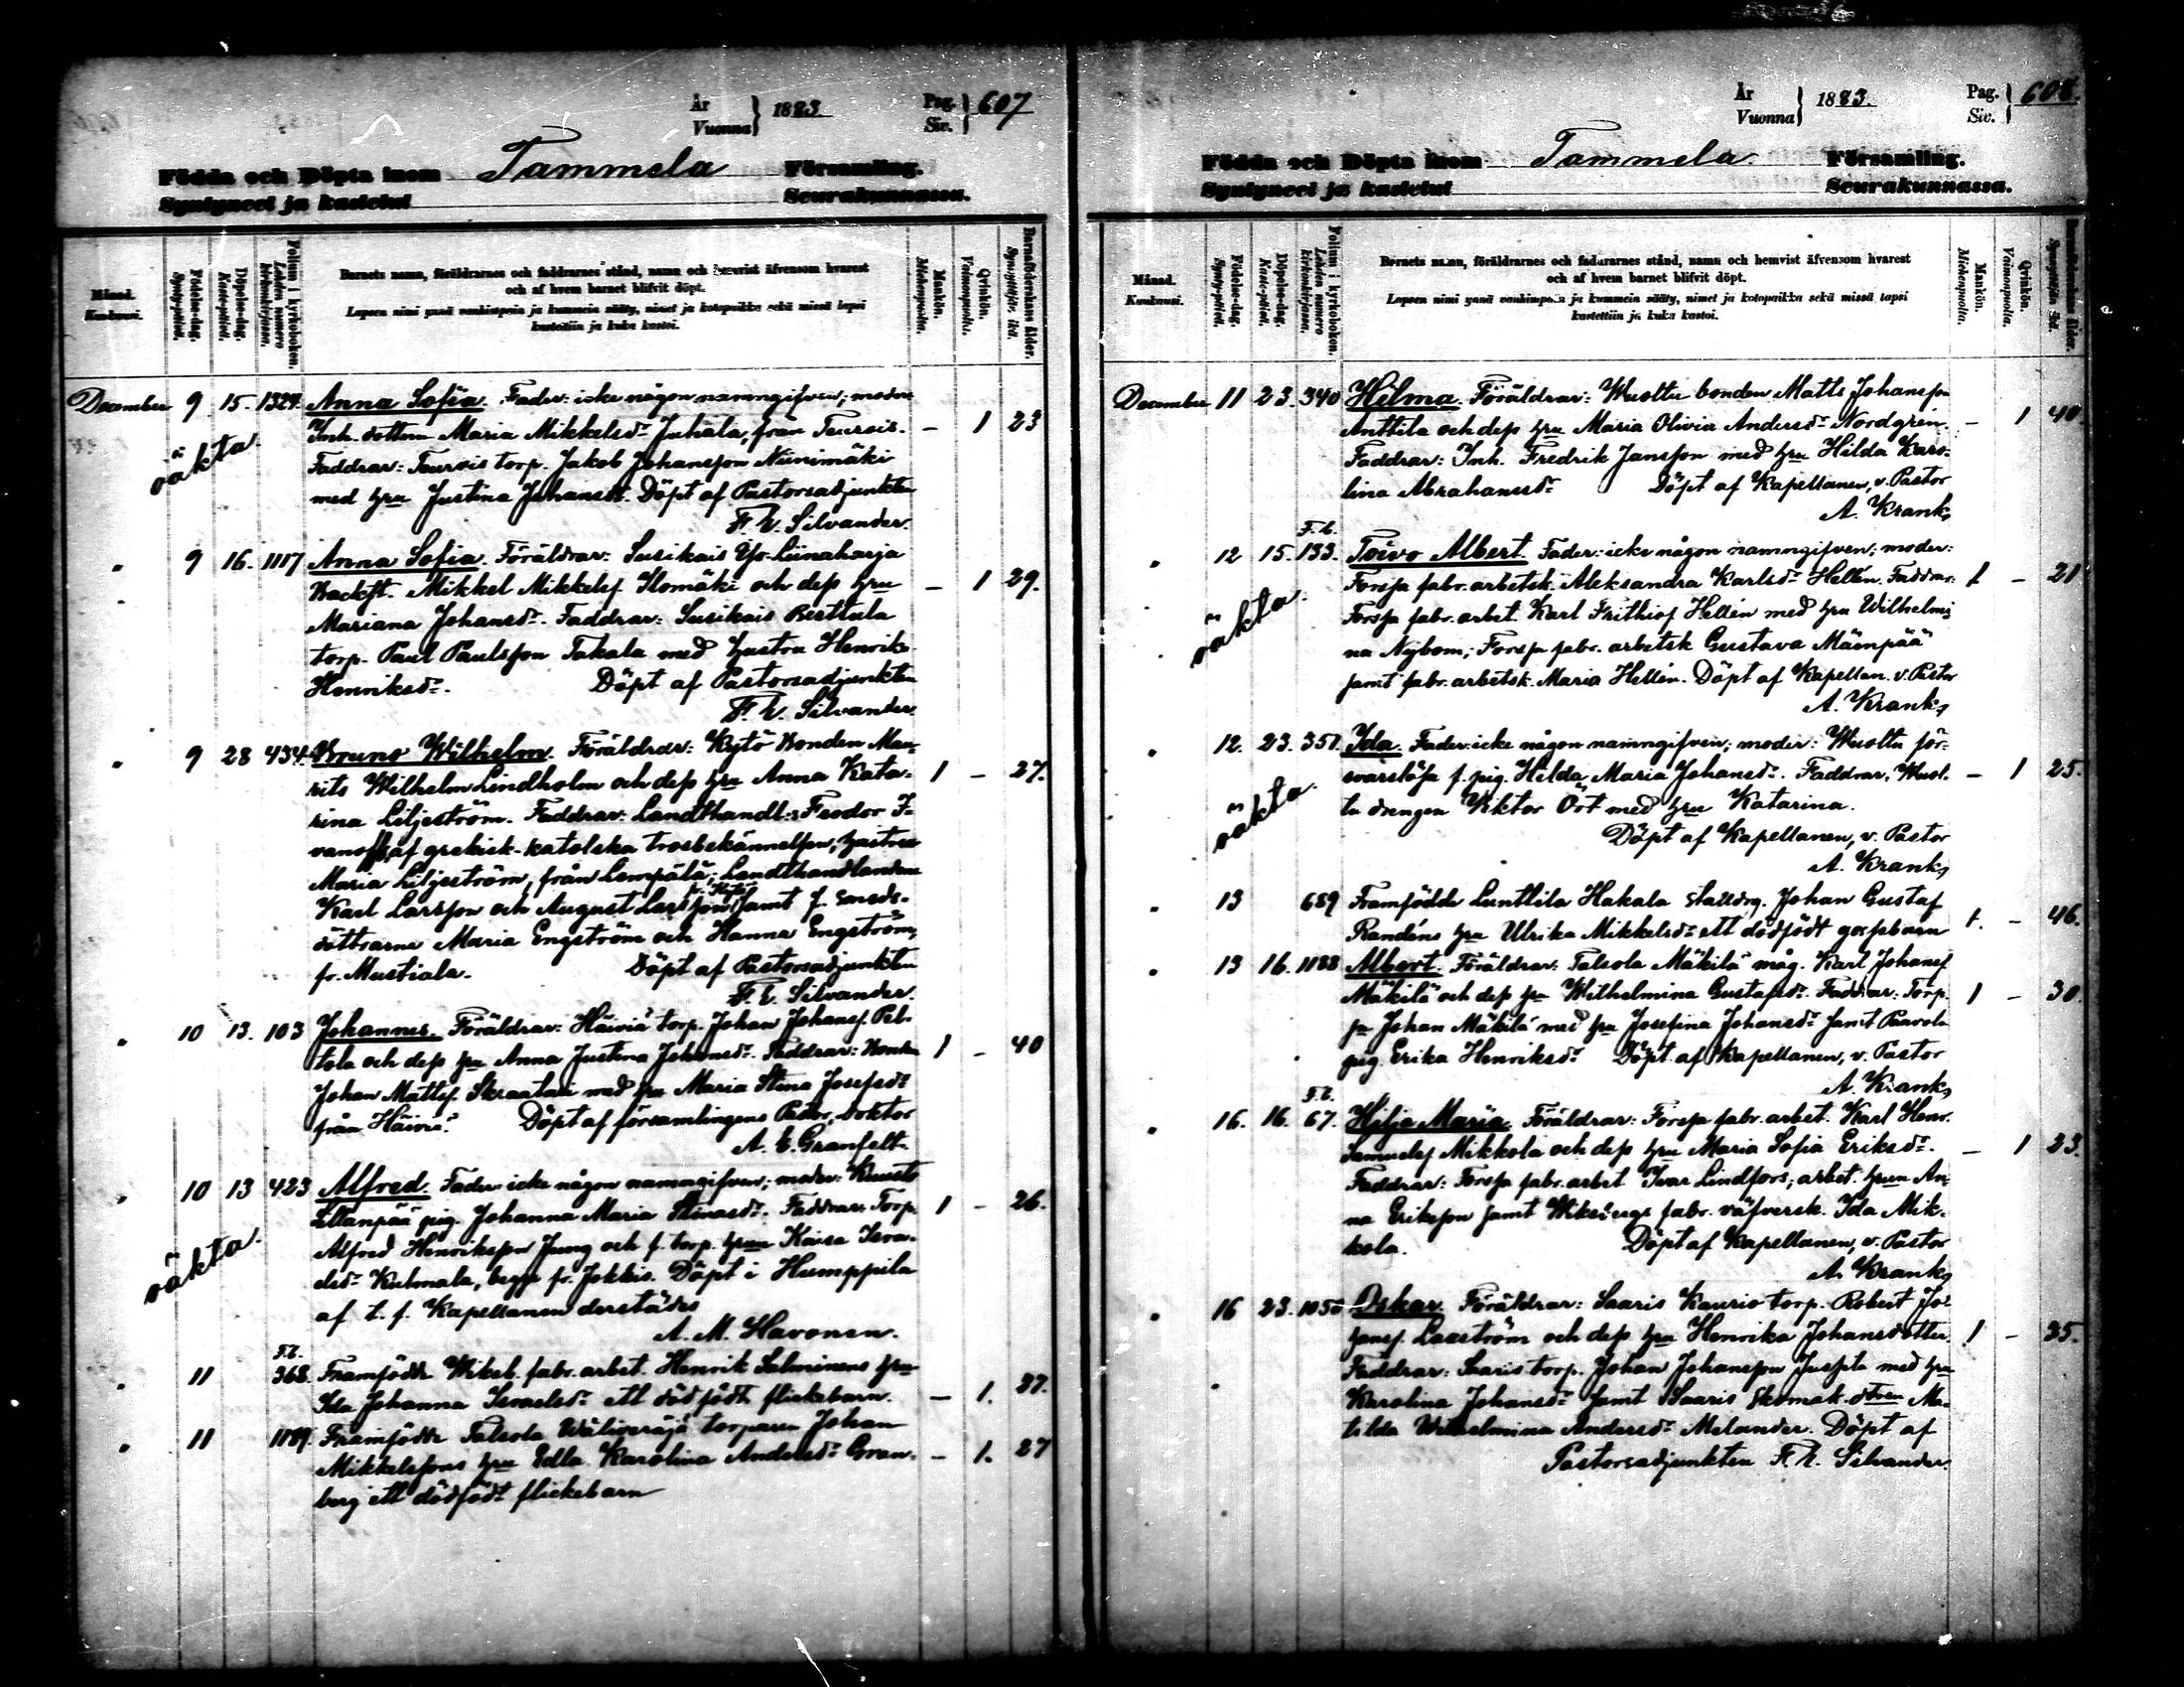 År
Vuonna} 1883.
Pag.
Siv.} 607
Födda och Döpta inom Tammela Församling.
Syntyneet ja kastetut Seurakunnassa.
Månad.
Kuukausi.
Födelse-dag.
Synty-päivä.
Döpelse-dag.
Kaste-päivä.
Folium i kyrkoboken.
Lehden numero kirkonkirjassa.
Barnets namn, föräldrarnes och faddrarnes stånd, namn och hemvist äfvensom hvarest
och af hvem barnet blifvit döpt.
Lapsen nimi ynnä vanhimpain ja kummein sääty, nimet ja kotopaikka sekä missä lapsi
kastettiin ja kuka kastoi.
Mankön.
Miehenpuolia.
Qvinkön.
Vaimonpuolia.
Barnaföderskans ålder.
Synnyttäjän ikä.
December 9 15. 1324. Anna Sofia. Fader: icke någon namngifven; moder
Inh. dottern Maria Mikkelsdr Juhala, från Teurois. — 1 23
oäkta.
Faddrar: Teurois torp. Jakob Johansson Niinimäki
med hru Justina Johansdr. Döpt af Pastorsadjunkten
F. E. Silvander.
" 9 16. 1117 Anna Sofia. Föräldrar: Susikais Yso-Liinaharja
Backst. Mikkel Mikkelss Ilomäki och dess hru — 1 29.
Mariana Johansdr. Faddrar: Susikais Berttula
torp. Paul Paulsson Takala med hustru Henrika
Henriksdr. Döpt af Pastorsadjunkten
F. E. Silvander.
" 9 28 434 Bruno Wilhelm. Föräldrar: Kytö Bonden Mau-
rits Wilhelm Lindholm och dess hru Anna Kata- 1 — 27.
rina Liljeström. Faddrar: Landthandl: Feodor I-
vanoff, af grekisk-katolska trosbekännelsen, hustru
Maria Liljeström, från Lempälä; Landthandlandena
Karl Larsson och August Larsson fr. Kytö samt f. smeds-
döttrarna Maria Engström och Hanna Engström,
fr. Mustiala. Döpt af Pastorsadjunkten
F. E. Silvander.
" 10 13. 103 Johannes. Föräldrar: Häiviä torp. Johan Johanss. Pel-
tola och dess hru Anna Justina Johansdr. Faddrar: Bonden 1 — 40
Johan Mattss. Skraatari med hru Maria Stina Josefsdr
från Häiviä. Döpt af församlingens Pastor, Doktor
A. E. Granfelt.
" 10 13 423 Alfred. Fader: icke någon namngifven; moder: Kuusto
Ellanpää pig. Johanna Maria Stinasdr. Faddrar: Torp. 1 — 26.
oäkta.
Alfred Henriksson Jung och f. torp. hrun Kaisa Isra-
elsdr Kulmala, begge fr. Jokkis. Döpt i Humppila
af t. f. Kapellanen derstädes
A. M. Havonen.
F.b.
" 11 368. Framfödde Wiksb. fabr. arbet. Henrik Salminens hru
Ida Johanna Israelsdr ett dödfödt flickebarn. — 1. 37.
" 11 1189 Framfödde Talsola Wäliveräjä torparen Johan
Mikkelssons hru Edla Karolina Andersdr Gran- — 1. 27
berg ett dödfödt flickebarn
År
Vuonna} 1883.
Pag.
Siv.} 608.
Födda och Döpta inom Tammela Församling.
Syntyneet ja kastetut Seurakunnassa.
Månad.
Kuukausi.
Födelse-dag.
Synty-päivä.
Döpelse-dag.
Kaste-päivä.
Folium i kyrkoboken.
Lehden numero kirkonkirjassa.
Barnets namn, föräldrarnes och faddrarnes stånd, namn och hemvist äfvensom hvarest
och af hvem barnet blifvit döpt.
Lapsen nimi ynnä vanhimpain ja kummein sääty, nimet ja kotopaikka sekä missä lapsi
kastettiin ja kuka kastoi.
Mankön.
Miehenpuolia.
Qvinkön.
Vaimonpuolia.
Barnaföderskans ålder.
Synnyttäjän ikä.
December 11 23. 340 Hilma. Föräldrar: Wuoltu bonden Matts Johansson
Anttila och dess hru Maria Olivia Andersdr Nordgrén. — 1 40.
Faddrar: Inh. Fredrik Jansson med hru Hilda Karo-
lina Abrahamsdr. Döpt af Kapellanen, v. Pastor
A. Krank,
F.b.
" 12 15. 133. Toivo Albert. Fader: icke någon namngifven; moder:
Forssa fabr. arbetsk. Aleksandra Karlsdr Hellén. Faddrar: 1 — 21
oäkta.
Forssa fabr. arbet. Karl Frithiof Hellén med hru Wilhelmi-
na Nybom; Forssa fabr. arbetsk Gustava Mäenpää
samt fabr. arbetsk. Maria Hellén. Döpt af Kapellan. v. Pastor
A. Krank,
" 12. 23. 351. Ida. Fader: icke någon namngifven; moder: Wuoltu för-
svarslösa f. pig. Hilda Maria Johansdr. Faddrar: Wuol- — 1 25.
oäkta.
tu drengen Viktor Ört med hru Katarina.
Döpt af Kapellanen, v. Pastor
A. Krank,
" 13 689 Framfödde Lunttila Hakala Stalldrg. Johan Gustaf
Randéns hru Ulrika Mikkelsdr ett dödfödt gossebarn 1. — 46.
" 13 16. 1188 Albert. Föräldrar: Talsola Mäkilä måg. Karl Johanss
Mäkilä och dess hru Wilhelmina Gustafsdr. Faddrar: Torp. 1 — 30
Johan Mäkilä med hru Josefina Johansdr samt Paavola
pig. Erika Henriksdr Döpt af Kapellanen, v. Pastor
A. Krank,
F.b.
" 16. 16. 67. Hilja Maria. Föräldrar: Forssa fabr. arbet. Karl Henr.
Samuelss Mikkola och dess hru Maria Sofia Eriksdr. — 1 23.
Faddrar: Forssa fabr. arbet Ivar Lindfors; arbet. hrun An-
na Eriksson samt Wiksbergs fabr. väfversk. Ida Mik-
kola. Döpt af Kapellanen, v. Pastor
A. Krank,
" 16 23. 1050 Oskar. Föräldrar: Saaris Kaurio torp. Robert Jo-
hanss. Laxström och dess hru Henrika Johansdotter 1 — 35.
Faddrar: Saaris torp. Johan Johansson Jussila med hru
Karolina Johansdr samt Saaris Skomak. dtren Ma-
tilda Wilhelmina Andersdr Melander. Döpt af
Pastorsadjunkten F. E. Silvander.